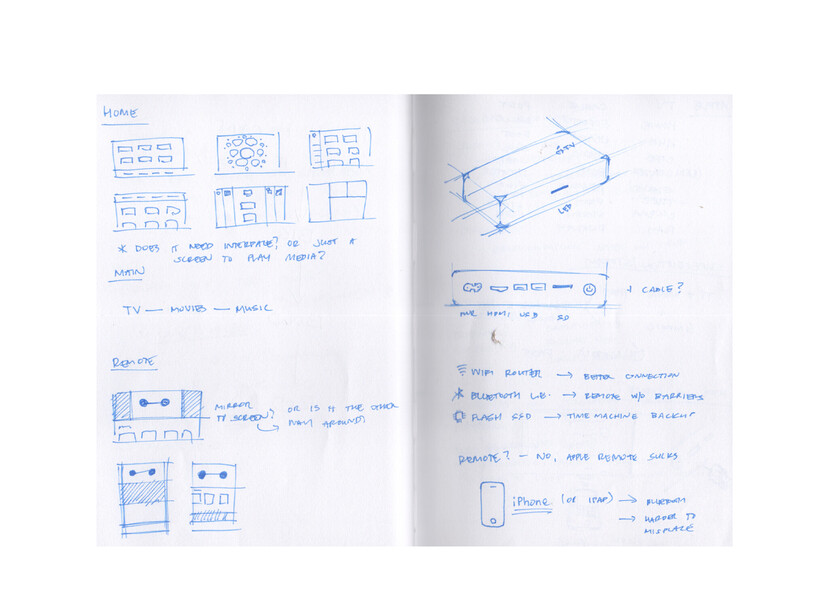 HOME
* DOES IT NEED INTERFACE? OR JUST A
SCREEN TO PLAY MEDIA?
MAIN
TV — MOVIES — MUSIC
REMOTE
MIRROR
TV SCREEN?
OR IS IT THE OTHER
WAY AROUND?
TV
LED
+ CABLE?
PWR HDMI USB SD
WIFI ROUTER → BETTER CONNECTION
BLUETOOTH L.E. → REMOTE W/O BARRIERS
FLASH SSD → TIME MACHINE BACKUP
REMOTE? — NO, APPLE REMOTE SUCKS
iPhone (OR IPAD) → BLUETOOTH
→ HARDER TO
MISPLACE